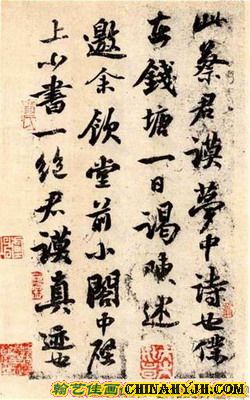 此蔡君謨夢中詩也僕
在錢塘一日謁陳述
邀余飲堂前小閣中壁
上小書一絕君謨真迹也
翰艺佳画
CHINAHYJH.COM